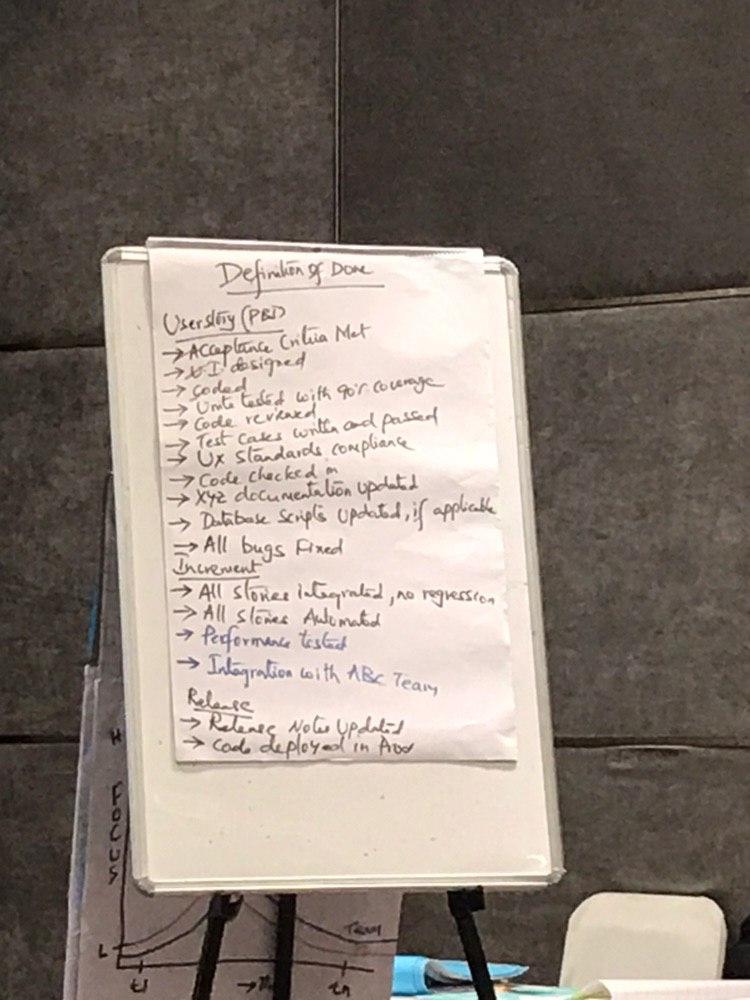 Definition of Done
Userstory (PBI)
→ Acceptance Critria Met
→ UI designed
→ coded
→ Units tested with 90% coverage
→ Code reviewed
→ Test cases written and passed
→ UX standards compliance
→ Code checked in
→ XYZ documentation updated
→ Database scripts updated, if applicable
→ All bugs Fixed
Increment
→ All stories integrated, no regression
→ All stories Automated
→ Performance tested
→ Integration with ABC Team
Release
→ Release Notes Updated
→ Code deployed in Prod
H
FOCUS
L
Team
t1
tn